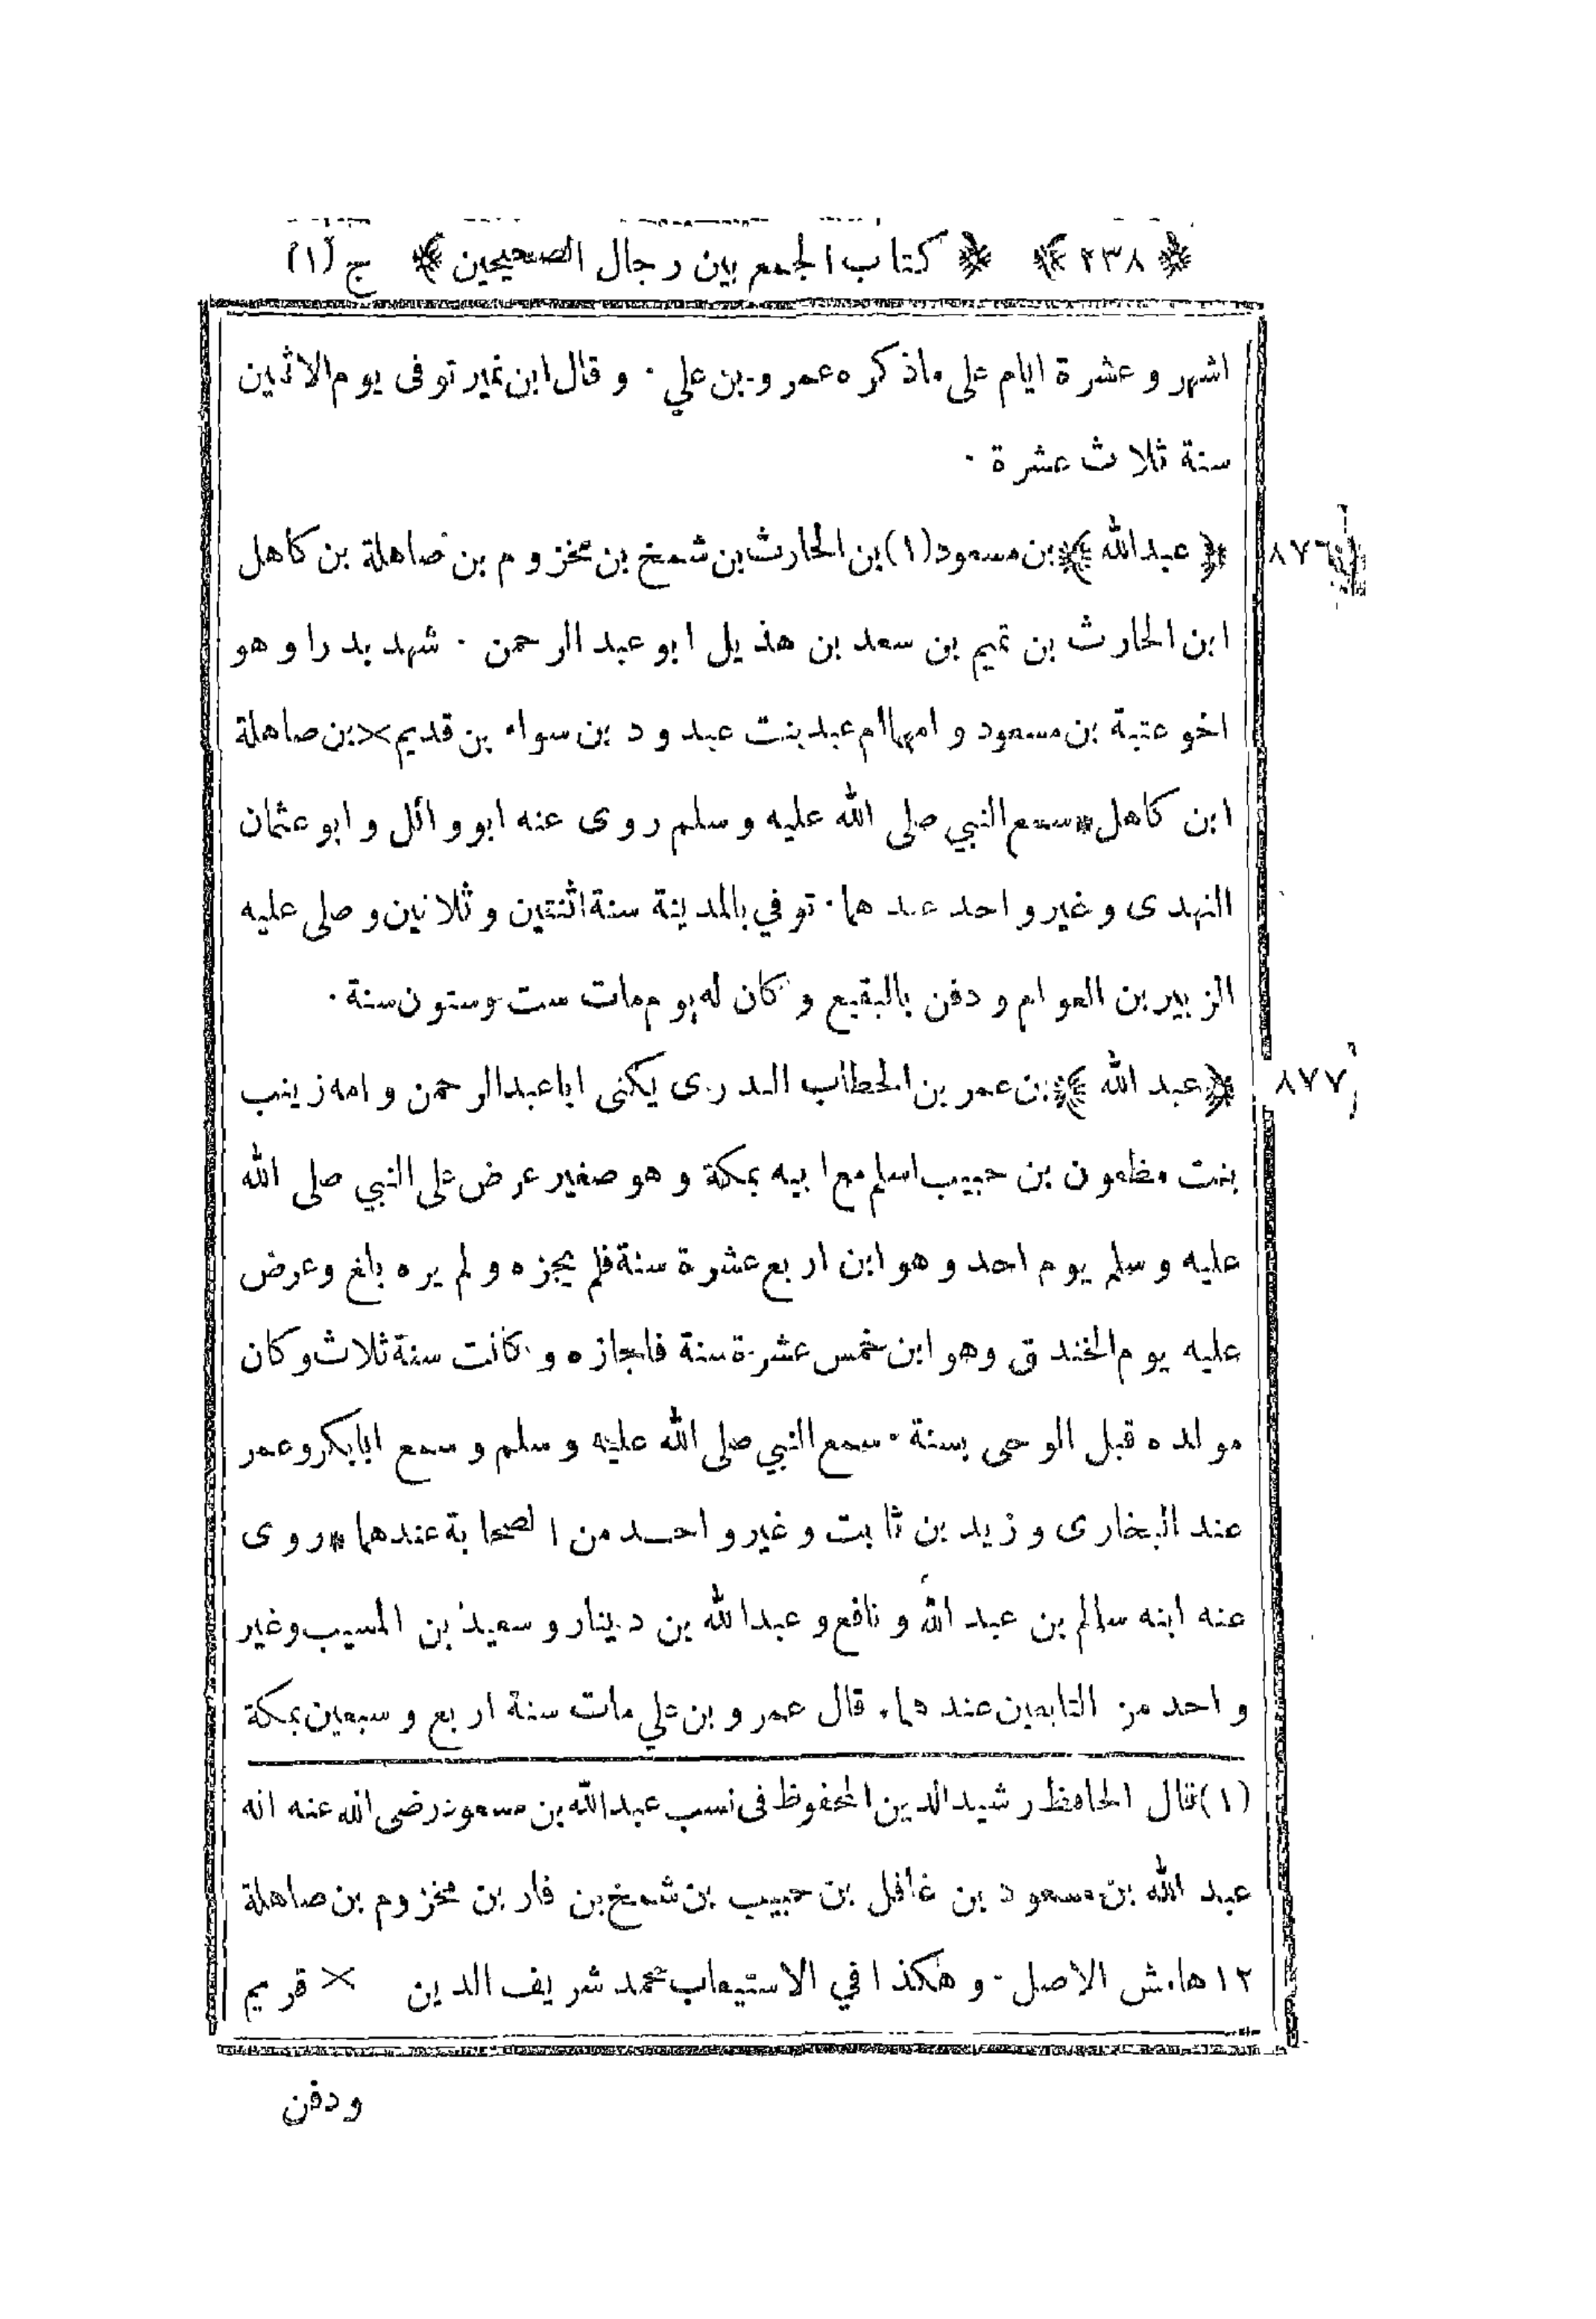 ﴿٢٣٨﴾ ﴿كتاب الجمع بين رجال الصحيحين﴾ ج (١)
اشهر وعشرة ايام على ما ذكره عمرو بن علي ٠ وقال ابن نمير توفى يوم الاثنين
سنة ثلاث عشرة ٠
٨٧٦ ﴿عبد الله﴾ بن مسعود (١) بن الحارث بن شمخ بن مخزوم بن صاهلة بن كاهل
ابن الحارث بن تميم بن سعد بن هذيل ابو عبد الرحمن ٠ شهد بدرا وهو
اخو عتبة بن مسعود وامهما ام عبد بنت عبدود بن سواء بن قديم × بن صاهلة
ابن كاهل * سمع النبي صلى الله عليه وسلم روى عنه ابو وائل وابو عثمان
النهدى وغير واحد عند هما ٠ توفي بالمدينة سنة اثنتين وثلاثين وصلى عليه
الزبير بن العوام ودفن بالبقيع وكان له يوم مات ست وستون سنة ٠
٨٧٧ ﴿عبد الله﴾ بن عمر بن الخطاب يكنى ابا عبد الرحمن وامه زينب
بنت مظعون بن حبيب اسلم مع ابيه بمكة وهو صغير عرض على النبي صلى الله
عليه وسلم يوم احد وهو ابن اربع عشرة سنة فلم يجزه ولم يره بلغ وعرض
عليه يوم الخندق وهو ابن خمس عشرة سنة فاجازه وكانت سنة ثلاث وكان
مولده قبل الوحى بسنة ٠ سمع النبي صلى الله عليه وسلم وسمع ابا بكر وعمر
عند البخارى وزيد بن ثابت وغير واحد من الصحابة عندهما * روى
عنه ابنه سالم بن عبد الله ونافع وعبد الله بن دينار وسعيد بن المسيب وغير
واحد من التابعين عند هما ٠ قال عمرو بن علي مات سنة اربع وسبعين بمكة
(١) قال الحافظ رشيد الدين المحفوظ فى نسب عبد الله بن مسعود رضى الله عنه انه
عبد الله بن مسعود بن غافل بن حبيب بن شمخ بن فار بن مخزوم بن صاهلة
١٢ هامش الاصل ٠ وهكذا في الاستيعاب محمد شريف الدين × قريم
ودفن